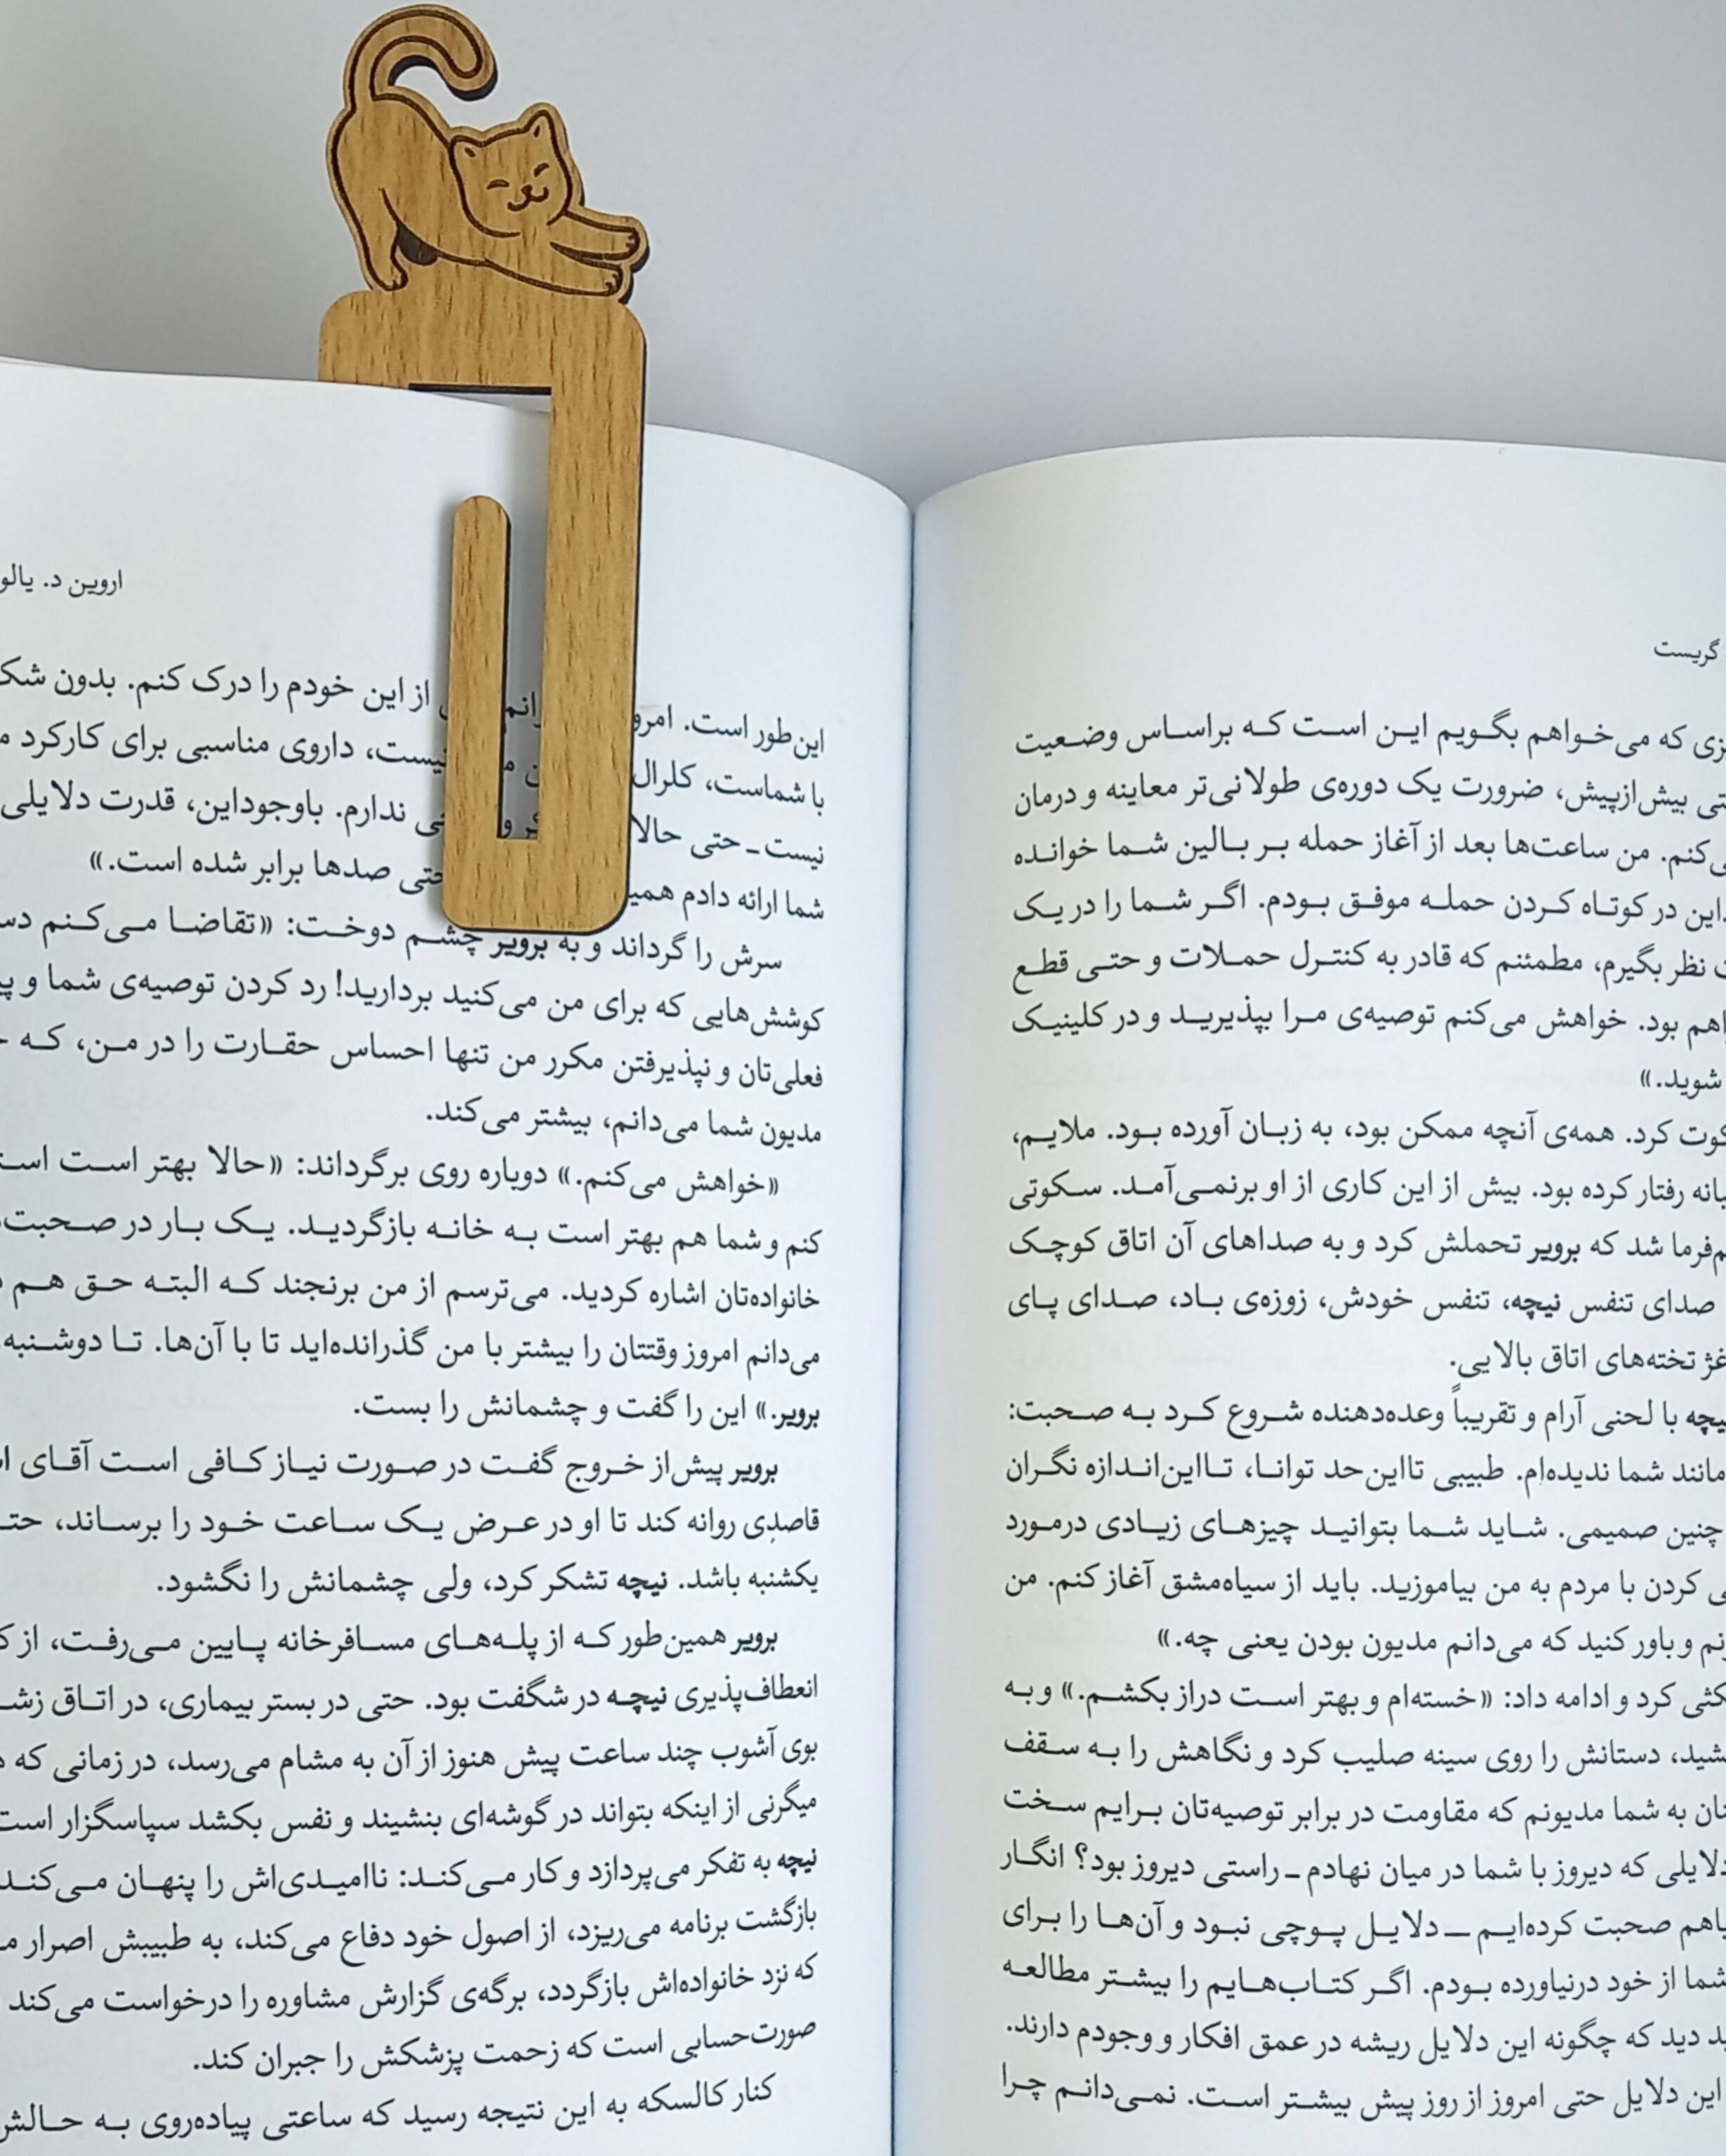 گریست
که می‌خواهم بگویم این است که براساس وضعیت
بیش‌ازپیش، ضرورت یک دوره‌ی طولانی‌تر معاینه و درمان
می‌کنم. من ساعت‌ها بعد از آغاز حمله بر بالین شما خوانده
در کوتاه کردن حمله موفق بودم. اگر شما را در یک
نظر بگیرم، مطمئنم که قادر به کنترل حملات و حتی قطع
بود. خواهش می‌کنم توصیه‌ی مرا بپذیرید و در کلینیک
شوید.»
کرد. همه‌ی آنچه ممکن بود، به زبان آورده بود. ملایم،
رفتار کرده بود. بیش از این کاری از او برنمی‌آمد. سکوتی
شد که برویر تحملش کرد و به صداهای آن اتاق کوچک
صدای تنفس نیچه، تنفس خودش، زوزه‌ی باد، صدای پای
تخته‌های اتاق بالایی.
نیچه با لحنی آرام و تقریباً وعده‌دهنده شروع کرد به صحبت:
مانند شما ندیده‌ام. طبیبی تااین‌حد توانا، تااین‌اندازه نگران
چنین صمیمی. شاید شما بتوانید چیزهای زیادی درمورد
کردن با مردم به من بیاموزید. باید از سیاه‌مشق آغاز کنم. من
و باور کنید که می‌دانم مدیون بودن یعنی چه.»
کرد و ادامه داد: «خسته‌ام و بهتر است دراز بکشم.» و به
دستانش را روی سینه صلیب کرد و نگاهش را به سقف
به شما مدیونم که مقاومت در برابر توصیه‌تان برایم سخت
دلایلی که دیروز با شما در میان نهادم ـ راستی دیروز بود؟ انگار
صحبت کرده‌ایم ـــ دلایل پوچی نبود و آن‌ها را برای
شما از خود درنیاورده بودم. اگر کتاب‌هایم را بیشتر مطالعه
دید که چگونه این دلایل ریشه در عمق افکار و وجودم دارند.
این دلایل حتی امروز از روز پیش بیشتر است. نمی‌دانم چرا
اروین د. یالو
این‌طور است. از این خودم را درک کنم. بدون شک
با شماست، کلرال نیست، داروی مناسبی برای کارکرد
نیست ـ حتی حالا ندارم. باوجوداین، قدرت دلایلی
شما ارائه دادم حتی صدها برابر شده است.»
سرش را گرداند و به برویر چشم دوخت: «تقاضا می‌کنم
کوشش‌هایی که برای من می‌کنید بردارید! رد کردن توصیه‌ی شما و
فعلی‌تان و نپذیرفتن مکرر من تنها احساس حقارت را در من، که
مدیون شما می‌دانم، بیشتر می‌کند.
«خواهش می‌کنم.» دوباره روی برگرداند: «حالا بهتر است
کنم و شما هم بهتر است به خانه بازگردید. یک بار در صحبت
خانواده‌تان اشاره کردید. می‌ترسم از من برنجند که البته حق هم
می‌دانم امروز وقتتان را بیشتر با من گذرانده‌اید تا با آن‌ها. تا دوشنبه
برویر.» این را گفت و چشمانش را بست.
برویر پیش‌از خروج گفت در صورت نیاز کافی است آقای
قاصدی روانه کند تا او در عرض یک ساعت خود را برساند،
یکشنبه باشد. نیچه تشکر کرد، ولی چشمانش را نگشود.
برویر همین‌طور که از پله‌های مسافرخانه پایین می‌رفت، از
انعطاف‌پذیری نیچه در شگفت بود. حتی در بستر بیماری، در اتاق
بوی آشوب چند ساعت پیش هنوز از آن به مشام می‌رسد، در زمانی که
میگرنی از اینکه بتواند در گوشه‌ای بنشیند و نفس بکشد سپاسگزار است
نیچه به تفکر می‌پردازد و کار می‌کند: ناامیدی‌اش را پنهان می‌کند
بازگشت برنامه می‌ریزد، از اصول خود دفاع می‌کند، به طبیبش اصرار
که نزد خانواده‌اش بازگردد، برگه‌ی گزارش مشاوره را درخواست می‌کند
صورت‌حسابی است که زحمت پزشکش را جبران کند.
کنار کالسکه به این نتیجه رسید که ساعتی پیاده‌روی به حالش